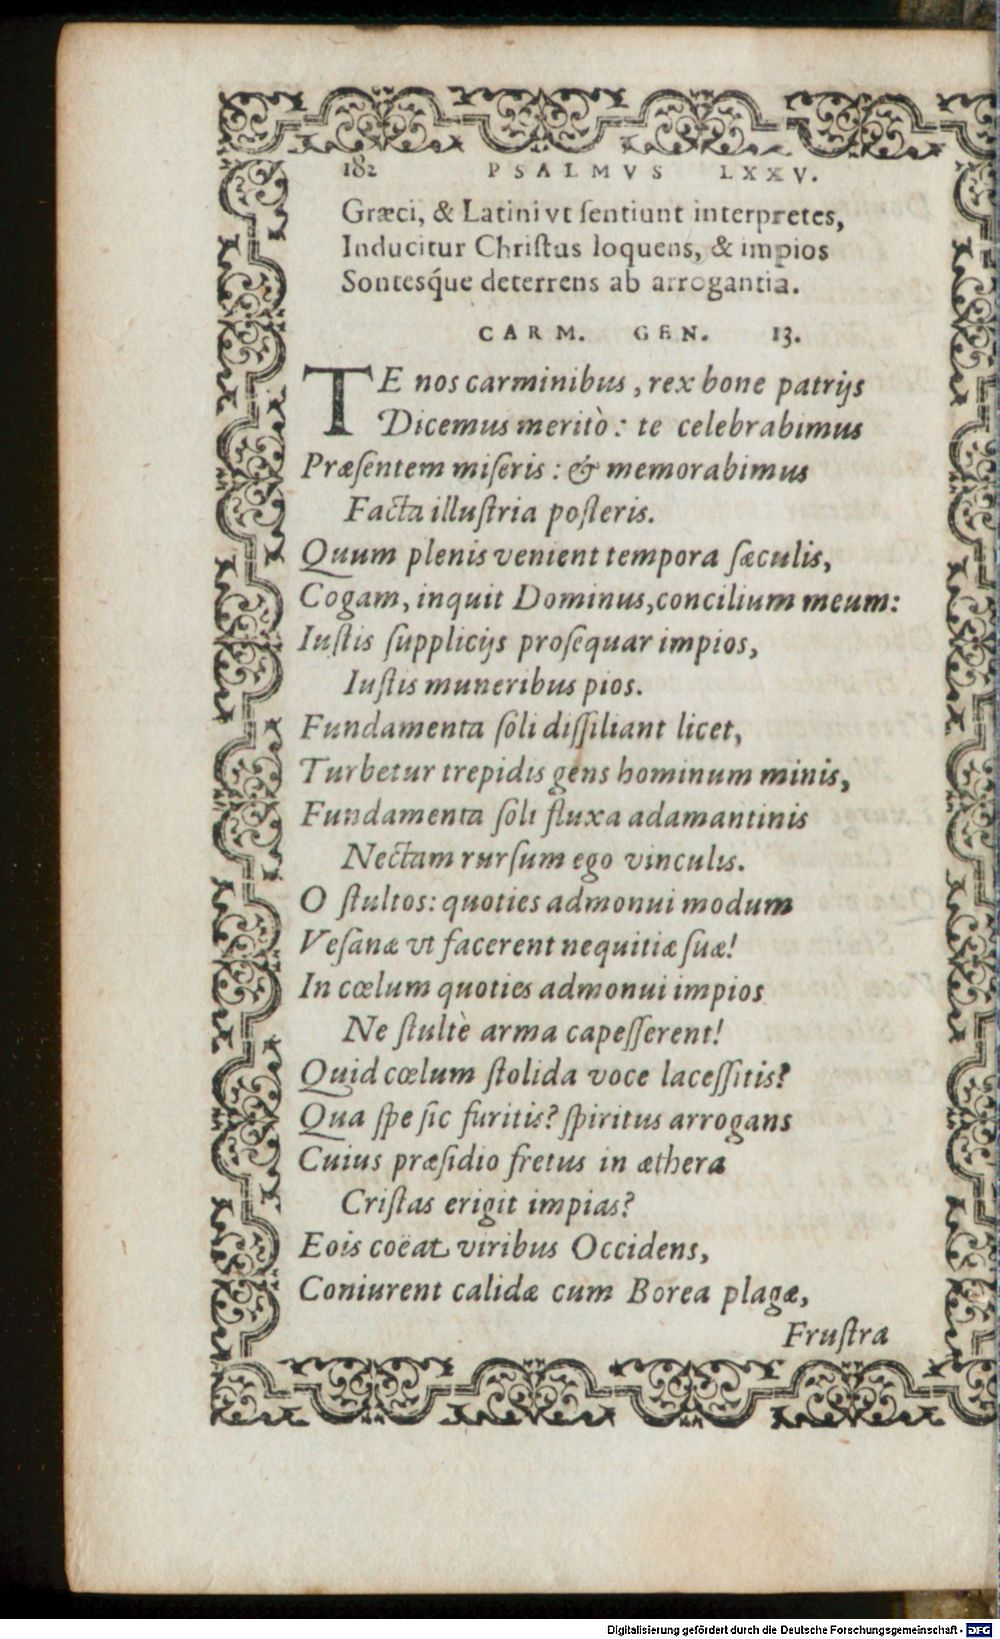 182 PSALMVS LXXV.
Græci, & Latini vt ſentiunt interpretes,
Inducitur Chriſtus loquens, & impios
Sontesq́ue deterrens ab arrogantia.
CARM. GEN. 13.
TE nos carminibus, rex bone patrijs
Dicemus meritò: te celebrabimus
Præſentem miſeris: & memorabimus
Facta illuſtria poſteris.
Quum plenis venient tempora ſæculis,
Cogam, inquit Dominus, concilium meum:
Iuſtis ſupplicijs proſequar impios,
Iuſtis muneribus pios.
Fundamenta ſoli diſſiliant licet,
Turbetur trepidis gens hominum minis,
Fundamenta ſoli fluxa adamantinis
Nectam rurſum ego vinculis.
O ſtultos: quoties admonui modum
Veſanæ vt facerent nequitiæ ſuæ!
In cœlum quoties admonui impios
Ne ſtultè arma capeſſerent!
Quid cœlum ſtolida voce laceſſitis?
Qua ſpe ſic furitis? ſpiritus arrogans
Cuius præſidio fretus in æthera
Criſtas erigit impias?
Eois coëat viribus Occidens,
Coniurent calidæ cum Borea plagæ,
Fruſtra
Digitalisierung gefördert durch die Deutsche Forschungsgemeinschaft - DFG